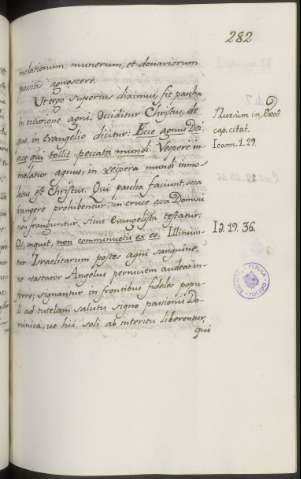 282
molationum munerum, et donariorum
possit agnoscere.
Ut ergo superius diximus, fit pascha
in occisione agni. Occiditur Christus, de
quo in Evangelio dicitur: Ecce agnus Dei,
ecce qui tollit peccata mundi. Vespere im-
molatur agnus; in vespera mundi immo-
latus est Christus. Qui pascha faciunt, ossa
frangere prohibentur; in cruce ossa Domini
non franguntur, sicut Evangelista testatur:
Os, inquit, non comminuetis ex eo. Illinun-
tur Israelitarum postes agni sanguine,
ne vastator Angelus perniciem audeat in-
ferre; signantur in frontibus fideles popu-
li ad tutelam salutis signo passionis Do-
minicæ, ut hi soli ab interitu liberentur,
qui
in Exod.
cap. citat.
Ioan. 1. 29.
19. 36.